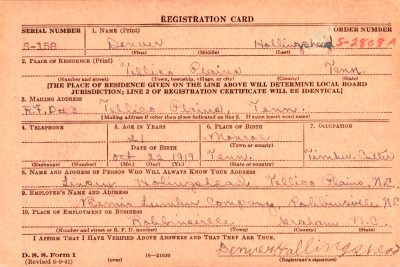 REGISTRATION CARD
SERIAL NUMBER 1. NAME (Print) ORDER NUMBER
S-158 Denver Hollingshead S-2808A
(First) (Middle) (Last)
2. PLACE OF RESIDENCE (Print)
Tellico Plains Tenn.
(Number and street) (Town, township, village, or city) (County) (State)
[THE PLACE OF RESIDENCE GIVEN ON THE LINE ABOVE WILL DETERMINE LOCAL BOARD
JURISDICTION; LINE 2 OF REGISTRATION CERTIFICATE WILL BE IDENTICAL]
3. MAILING ADDRESS
Tellico Plains, Tenn.
[Mailing address if other than place indicated on line 2. If same insert word same]
4. TELEPHONE 5. AGE IN YEARS 6. PLACE OF BIRTH 7. OCCUPATION
21 Monroe
DATE OF BIRTH (Town or county)
Oct 22 1919 Tenn. Timber Cutter
(Exchange) (Number) (Mo.) (Day) (Yr.) (State or country)
8. NAME AND ADDRESS OF PERSON WHO WILL ALWAYS KNOW YOUR ADDRESS
Hollingshead Tellico Plains N.C
9. EMPLOYER'S NAME AND ADDRESS
Bemis Lumber Company, Robbinsville N.C
10. PLACE OF EMPLOYMENT OR BUSINESS
Robbinsville Graham N.C.
(Number and street or R. F. D. number) (Town) (County) (State)
I AFFIRM THAT I HAVE VERIFIED ABOVE ANSWERS AND THAT THEY ARE TRUE.
Denver Hollingshead
D. S. S. Form 1
(Revised 6-9-41) (over) 16-21630 (Registrant's signature)